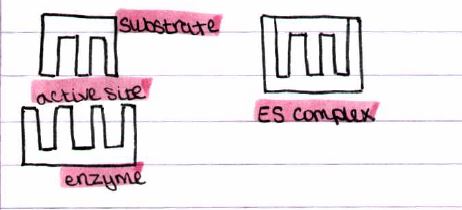 substrate
active site
ES complex
enzyme